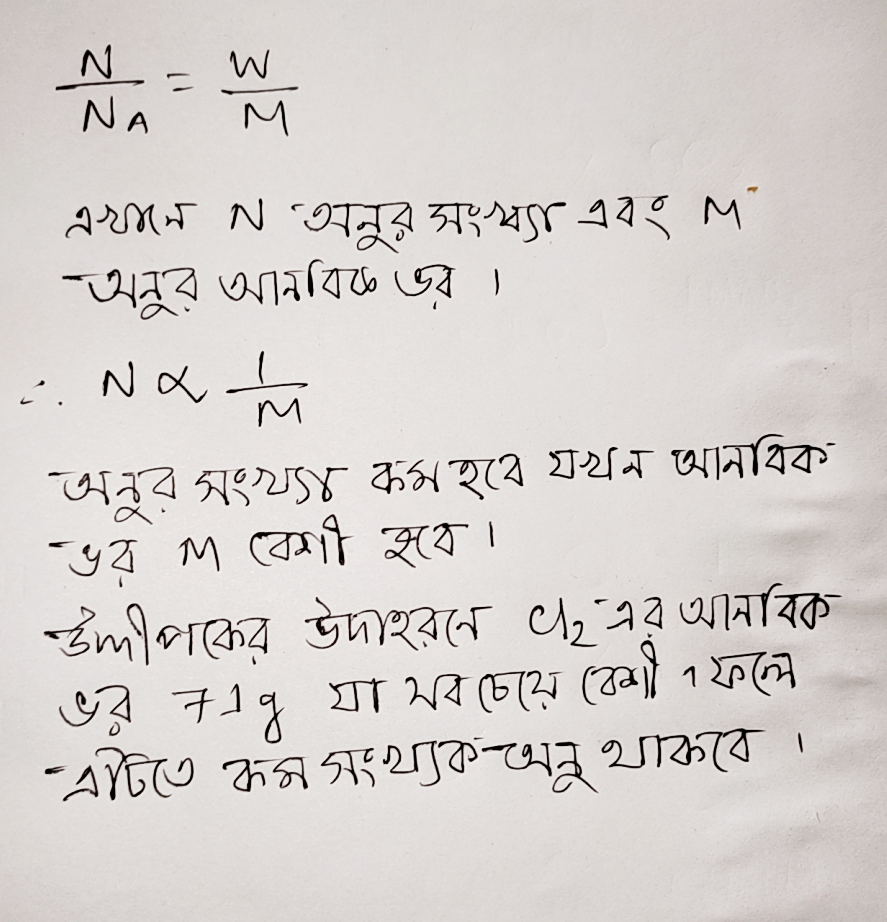 N/N_A = W/M
এখানে N অনুর সংখ্যা এবং M
অনুর আনবিক ভর ।
∴ N ∝ 1/M
অনুর সংখ্যা কম হবে যখন আনবিক
ভর M বেশী হবে ।
উদ্দীপকের উদাহরনে Cl₂ এর আনবিক
ভর 71g যা সব চেয়ে বেশী । ফলে
এটিতে কম সংখ্যক অনু থাকবে ।